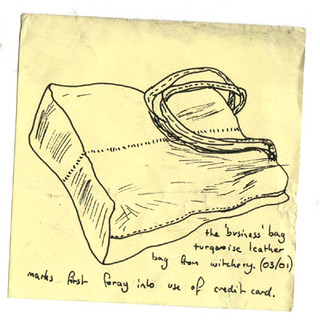 the 'business' bag
turquoise leather
bag from witchery. (03/01)
marks first foray into use of credit card.